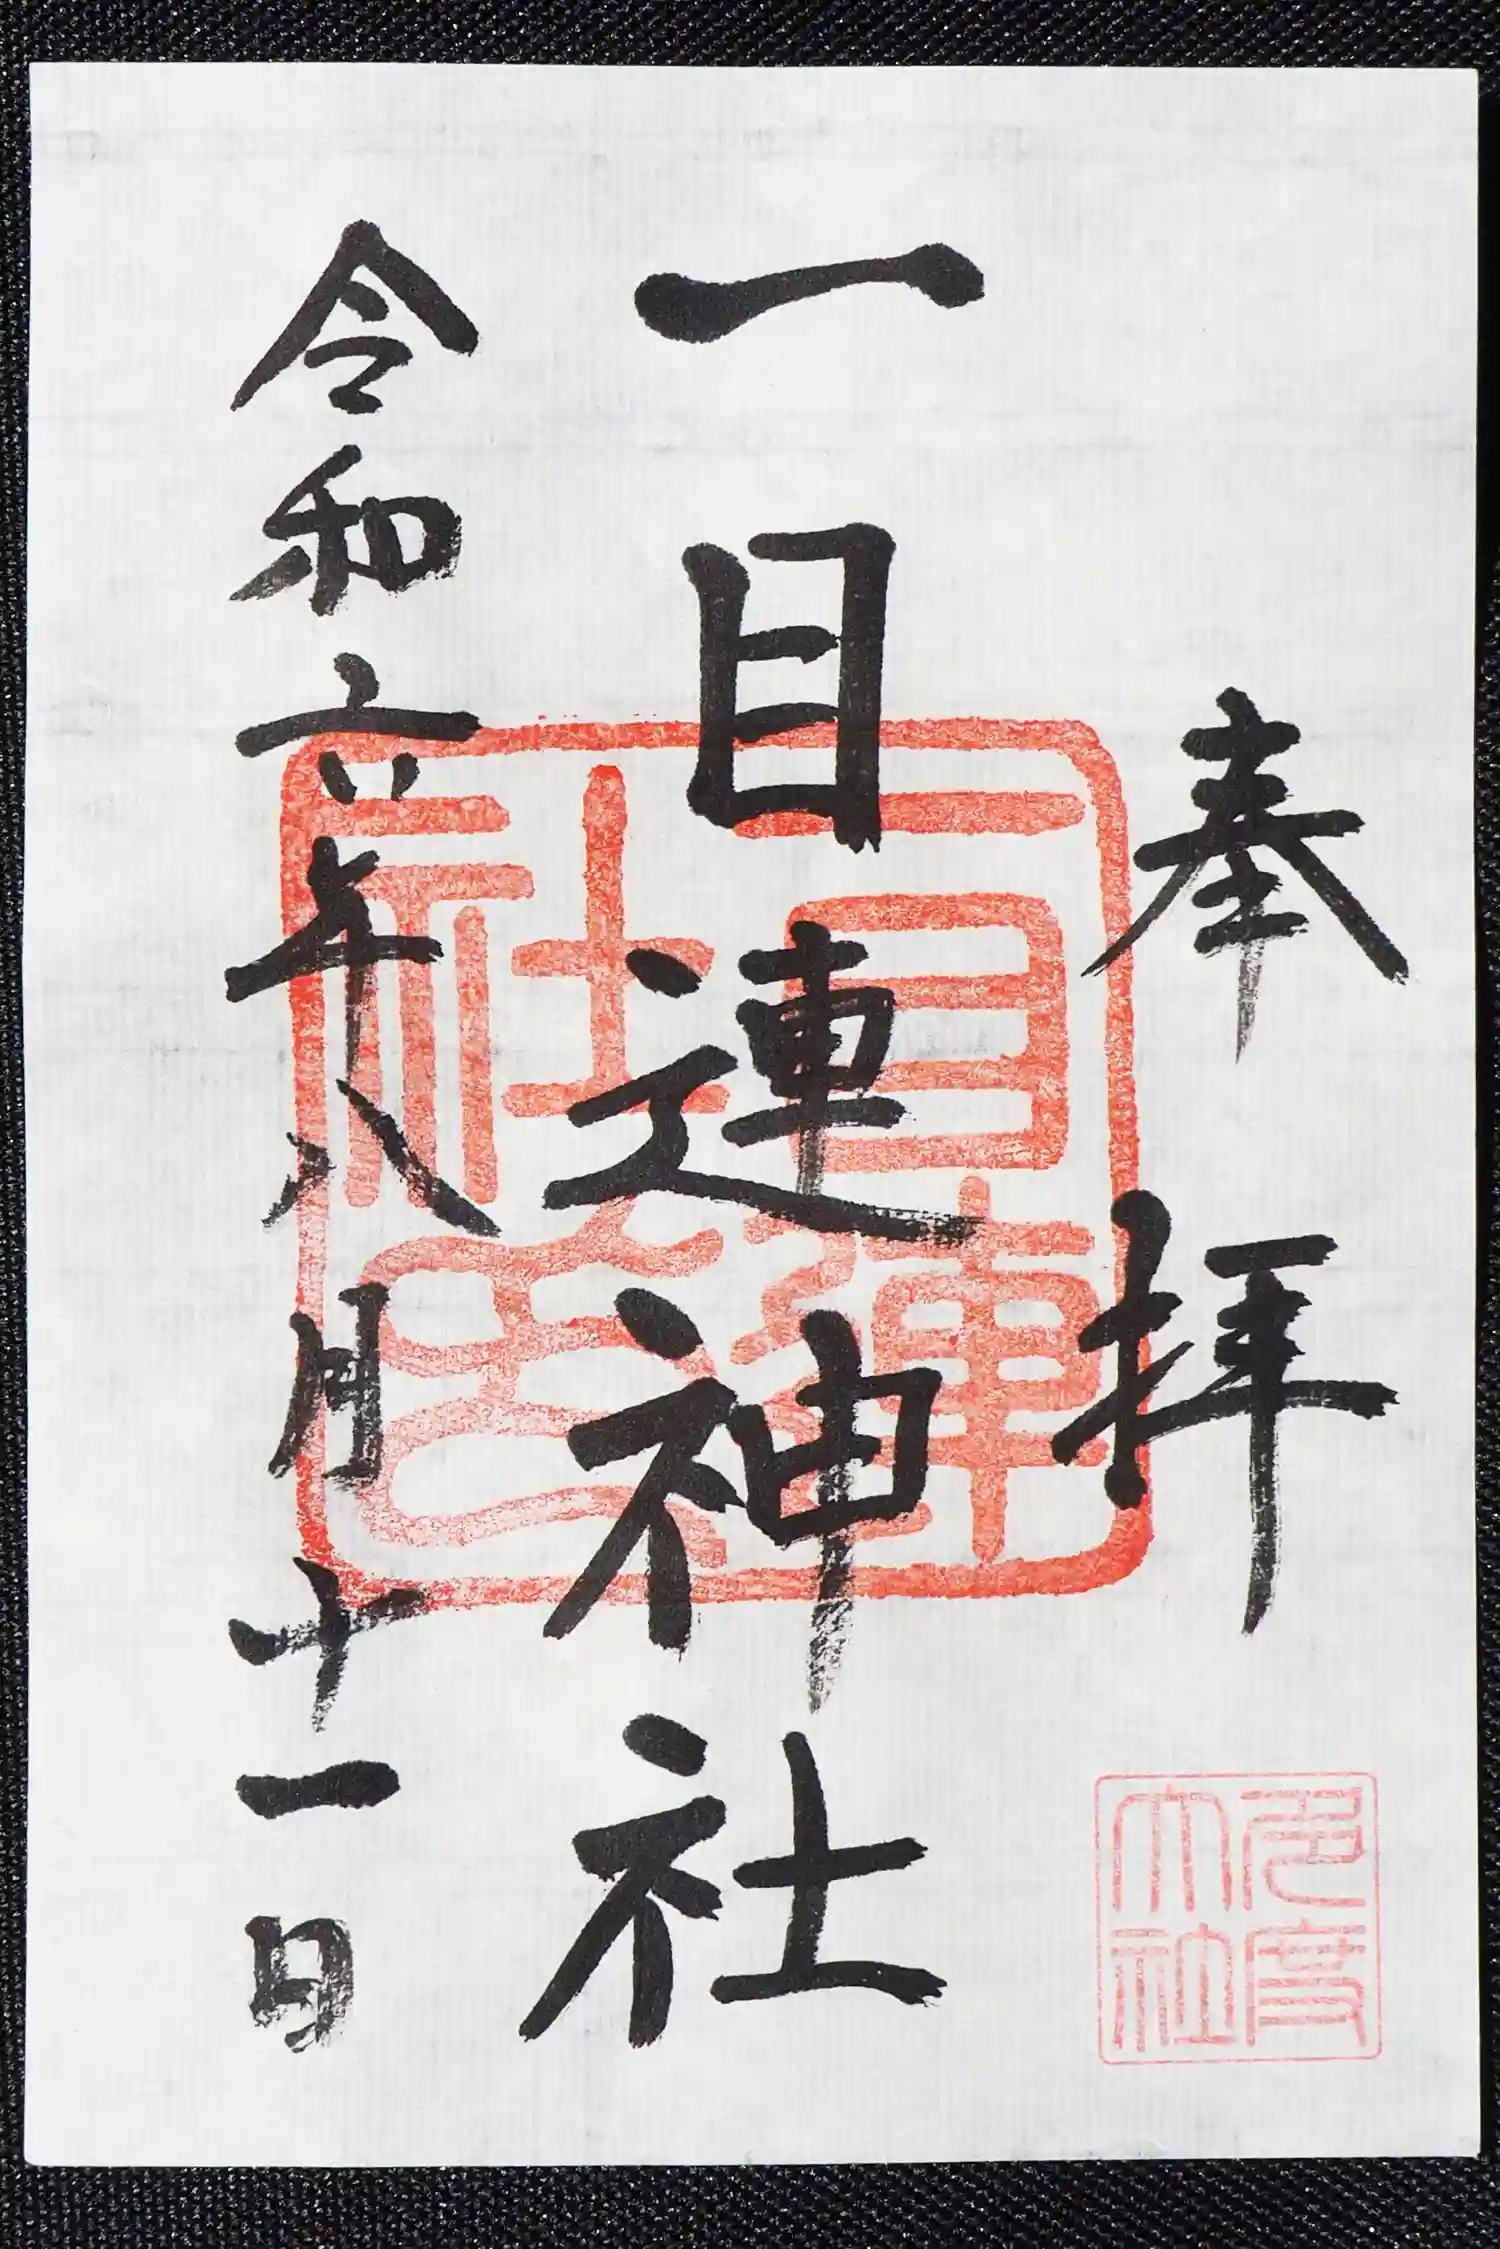 奉拝
多度
大社
一目連神社
一目連
社印
令和六年八月十一日